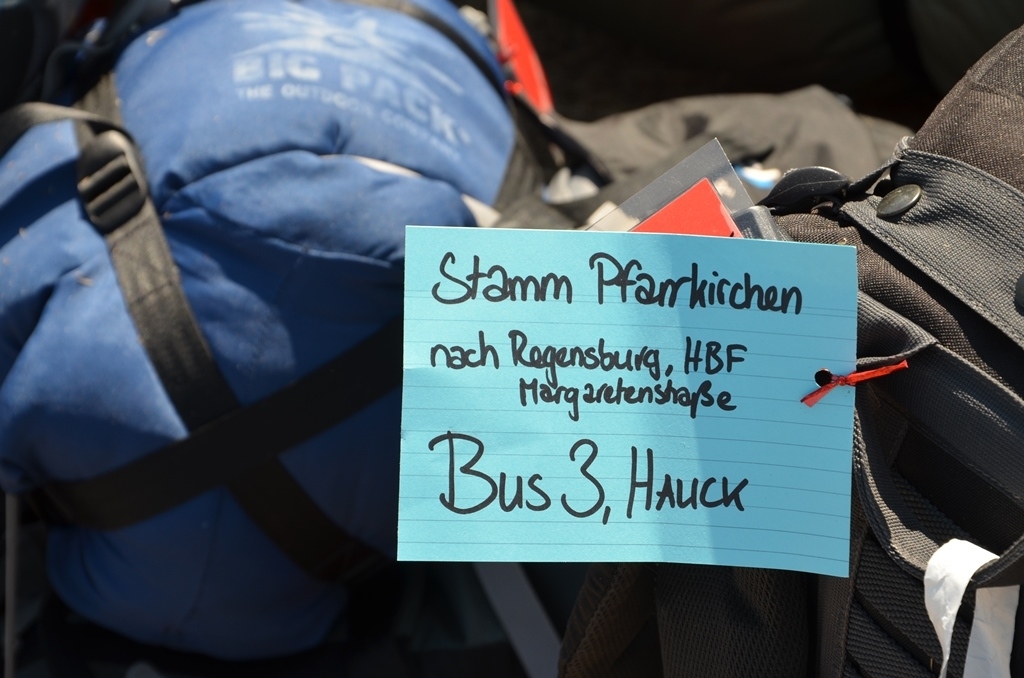 BIG PACK
THE OUTDOOR COMPANY
Stamm Pfarrkirchen
nach Regensburg, HBF
Margaretenstraße
Bus 3, HAUCK